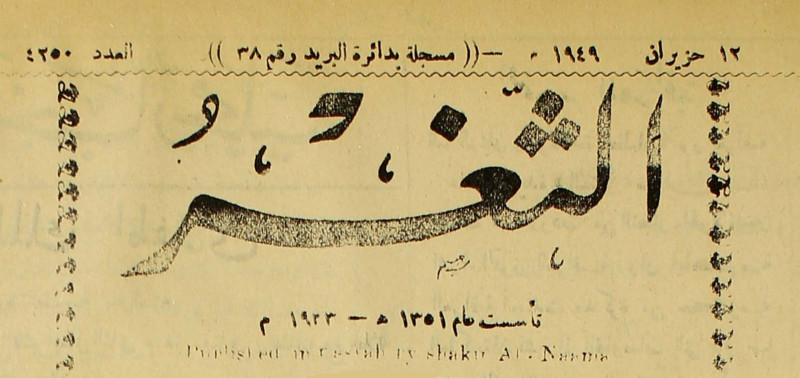 ١٢ حزيران ١٩٤٩ م — (( مسجلة بدائرة البريد رقم ٣٨ )) العدد ٤٢٥٠
الثغر
تأسست عام ١٣٥١ هـ — ١٩٣٣ م
Published in Basrah by shakir An-Naama